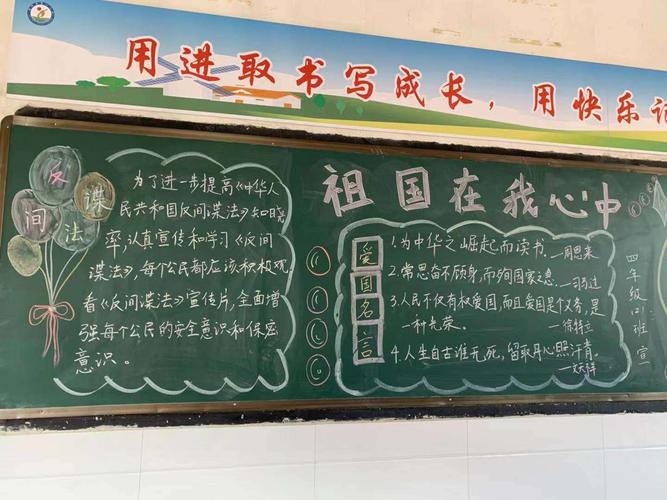 用进取书写成长，用快乐
反间谍法
为了进一步提高《中华人
民共和国反间谍法》知晓
率,认真宣传和学习《反间
谍法》,每个公民都应该积极观
看《反间谍法》宣传片,全面增
强每个公民的安全意识和保密
意识。
祖国在我心中
爱国名言
1.为中华之崛起而读书。—周恩来
2.常思奋不顾身,而殉国家之急。—司马迁
3.人民不仅有权爱国,而且爱国是个义务,是
一种光荣。—徐特立
4.人生自古谁无死,留取丹心照汗青。
—文天祥
四年级
班宣